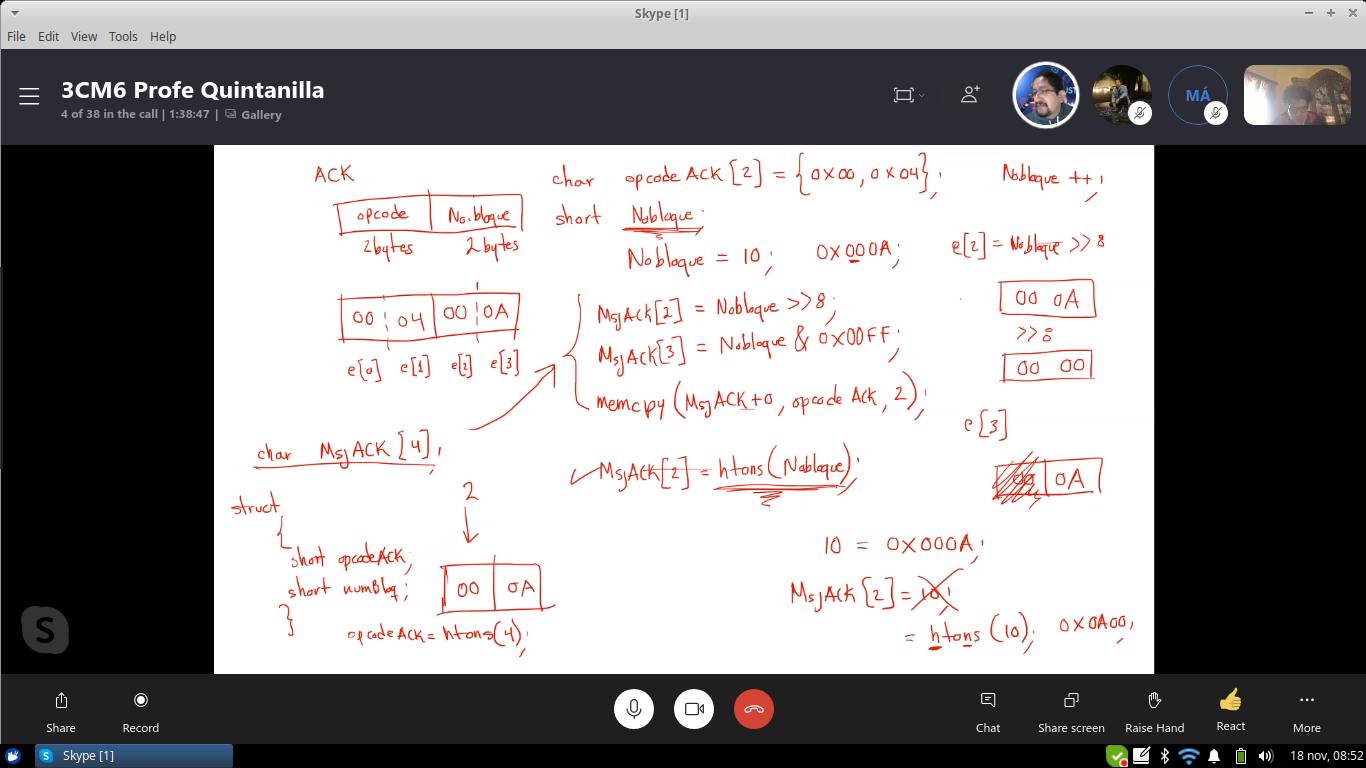 Skype [1]
File Edit View Tools Help
3CM6 Profe Quintanilla
4 of 38 in the call | 1:38:47 | Gallery
MÁ
ACK
opcode No.bloque
2bytes 2bytes
00 04 00 0A
e[0] e[1] e[2] e[3]
char MsjACK[4];
struct
{
short opcodeACK;
short numBloq;
}
2
00 0A
opcodeACK = htons(4);
char opcodeACK[2] = {0x00, 0x04};
short Nobloque;
Nobloque = 10; 0x000A;
MsjACK[2] = Nobloque >>8;
MsjACK[3] = Nobloque & 0x00FF;
memcpy(MsjACK+0, opcodeACK, 2);
MsjACK[2] = htons(Nobloque);
Nobloque ++;
e[2] = Nobloque >> 8
00 0A
>>8
00 00
e[3]
00 0A
10 = 0X000A;
MsjACK[2] = 10;
= htons(10); 0X0A00;
S
Share
Record
Chat
Share screen
Raise Hand
React
More
Skype [1]
18 nov, 08:52